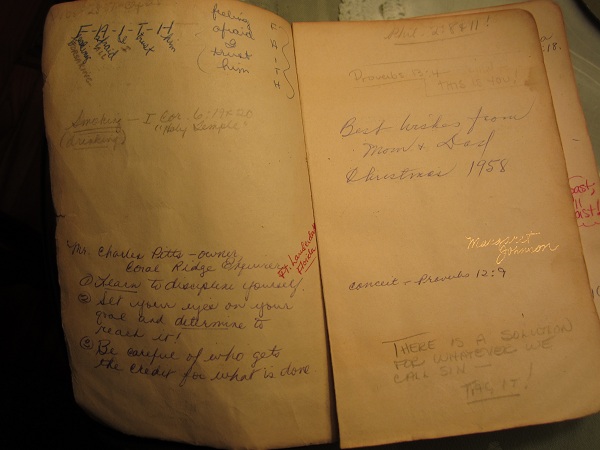 F-A-I-T-H
feeling
afraid
I
trust
him
F
A
I
T
H
Smoking - I Cor. 6:19+20
(drinking) "Holy Temple"
Mr. Charles Pitts - owner
Coral Ridge
Ft. Lauderdale
Florida
① Learn to discipline yourself.
② Set your eyes on your
goal and determine to
reach it!
③ Be careful of who gets
the credit for what is done
Phil. 2:8+11!
Proverbs 13:4
THIS IS YOU!
Best Wishes from
Mom & Dad
Christmas 1958
Margaret
Johnson
conceit - Proverbs 12:9
THERE IS A SOLUTION
FOR WHATEVER WE
CALL SIN -
TAG IT!
18.